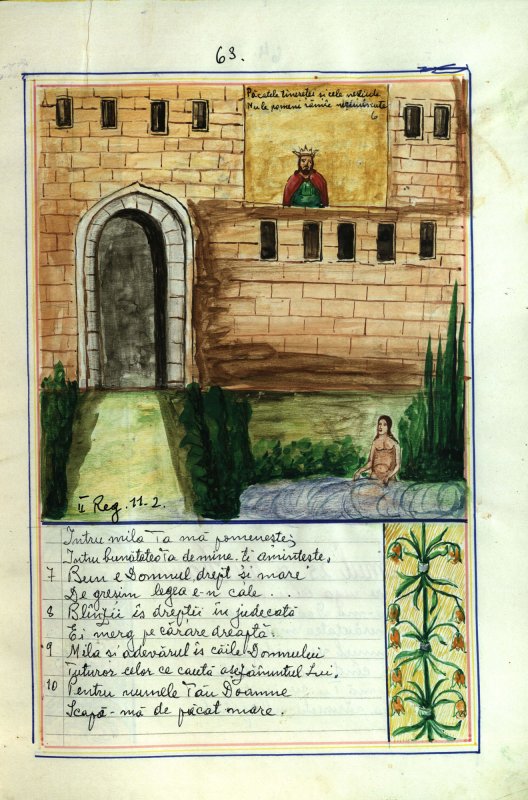 63.
Păcatele tinereței și cele neștiute
Nu le pomeni rămîie
6
II Reg. 11-2.
Întru mila Ta mă pomenește;
Întru bunătatea Ta de mine-Ți amintește.
7 Bun e Domnul, drept și mare
De greșim legea e-n cale...
8 Blînzii îs drepții în judecată
Ei merg pe cărare dreaptă.
9 Mila și adevărul is căile Domnului
Tuturor celor ce caută așezămîntul Lui.
10 Pentru numele Tău Doamne
Scapă-mă de păcat mare.